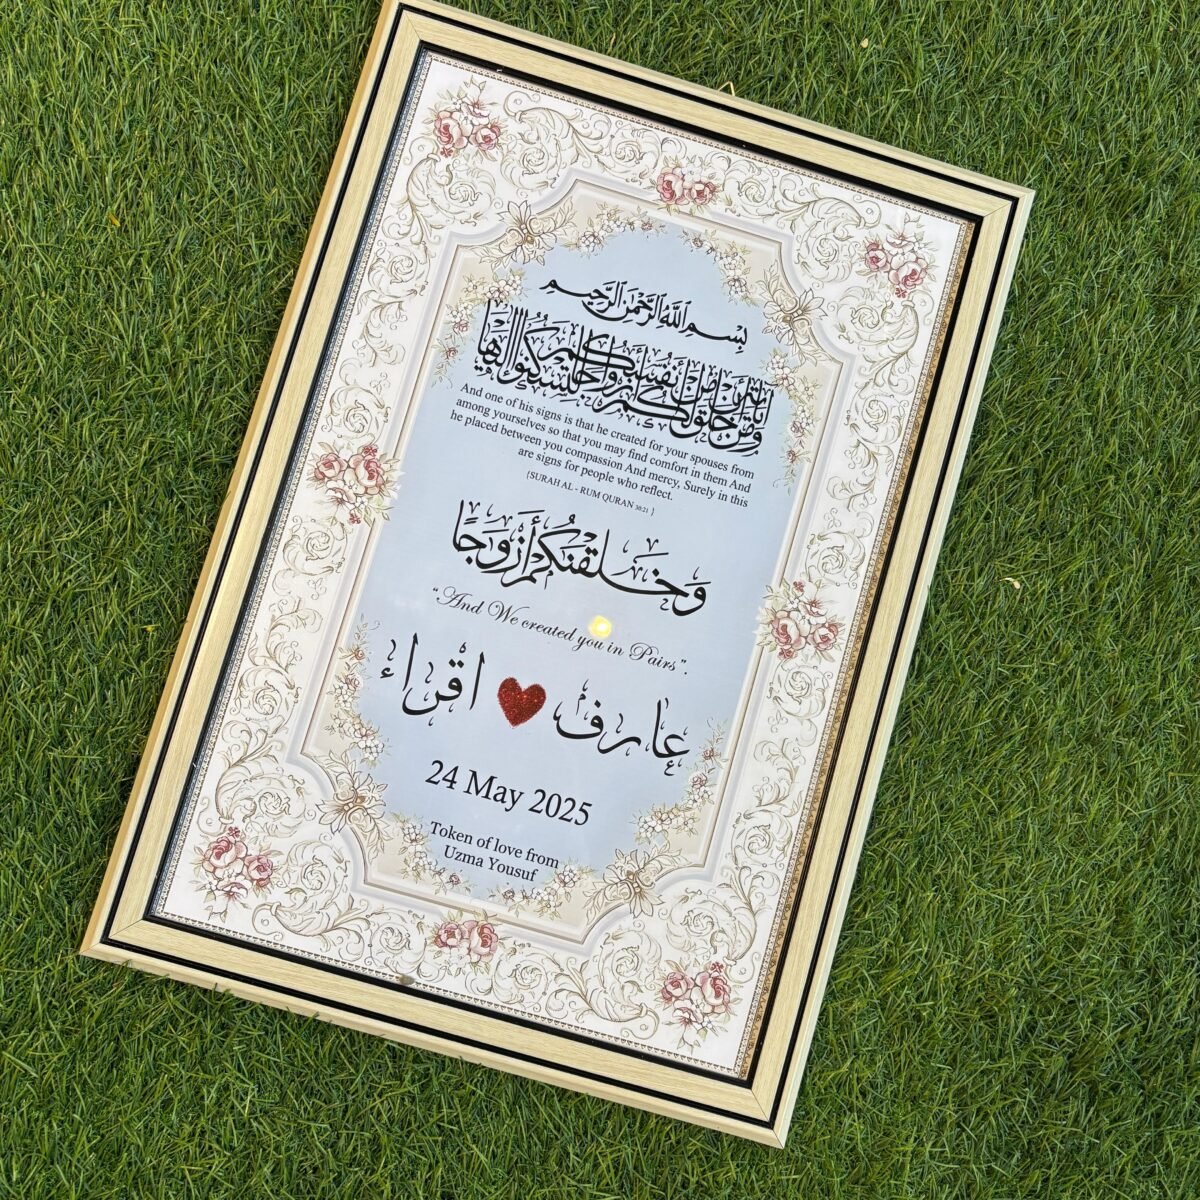 بِسْمِ ٱللَّهِ ٱلرَّحْمَٰنِ ٱلرَّحِيمِ
وَمِنْ آيَاتِهِ أَنْ خَلَقَ لَكُم مِّنْ أَنفُسِكُمْ أَزْوَاجًا لِّتَسْكُنُوا إِلَيْهَا
And one of his signs is that he created for your spouses from
among yourselves so that you may find comfort in them And
he placed between you compassion And mercy, Surely in this
are signs for people who reflect.
{SURAH AL - RUM QURAN 30:21 }
وَخَلَقْنَكُمْ أَزْوَجًا
"And We created you in Pairs".
عارف اقراء
24 May 2025
Token of love from
Uzma Yousuf